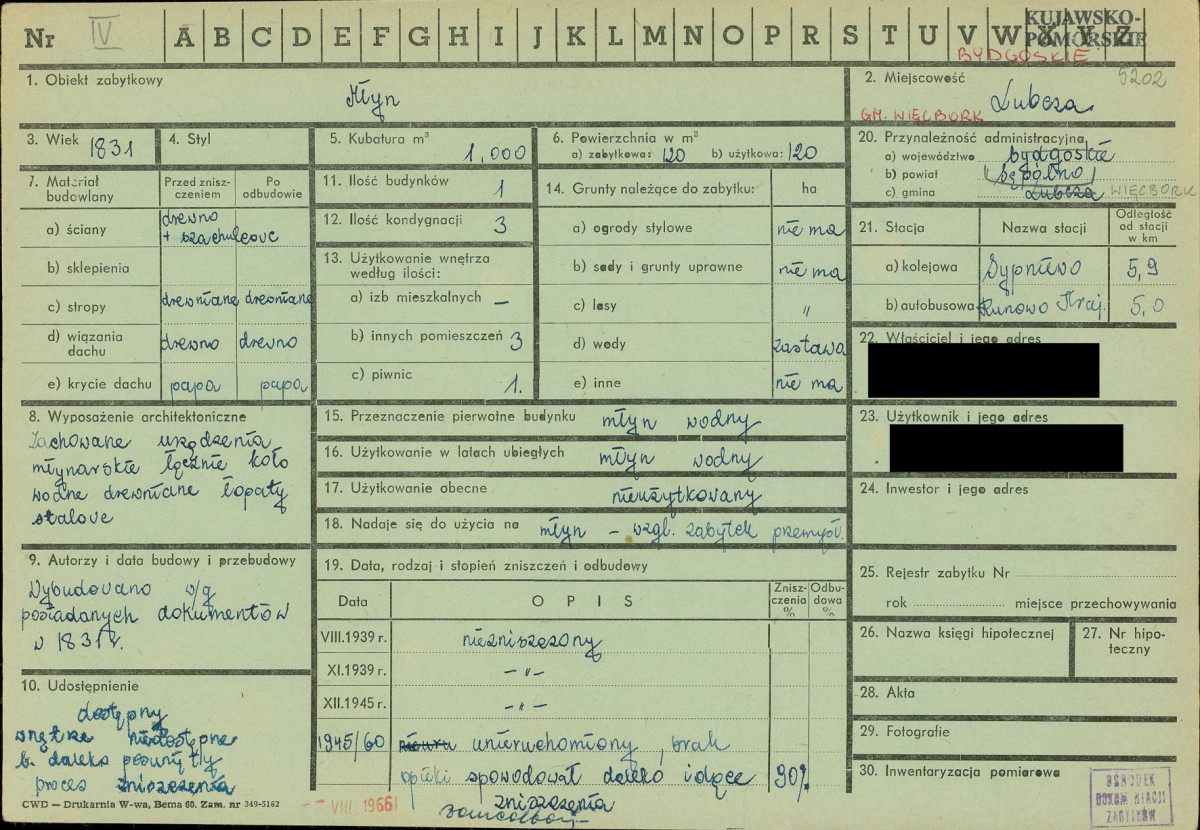 Nr IV A B C D E F G H I J K L M N O P R S T U V W X Y Z
KUJAWSKO-
POMORSKIE
BYDGOSKIE
1. Obiekt zabytkowy
Młyn
2. Miejscowość 5202
GM. WIĘCBORK Lubcza
3. Wiek 1831
4. Styl
5. Kubatura m³
1.000
6. Powierzchnia w m²
a) zabytkowa: 120 b) użytkowa: 120
20. Przynależność administracyjna
a) województwo bydgoskie
b) powiat (Sępólno)
c) gmina Lubcza WIĘCBORK
7. Materiał budowlany
Przed zniszczeniem
Po odbudowie
a) ściany drewno
+ szachulcowe
b) sklepienia
c) stropy drewniane drewniane
d) wiązania dachu drewno drewno
e) krycie dachu papa papa
11. Ilość budynków 1
12. Ilość kondygnacji 3
13. Użytkowanie wnętrza
według ilości:
a) izb mieszkalnych —
b) innych pomieszczeń 3
c) piwnic 1.
14. Grunty należące do zabytku: ha
a) ogrody stylowe nie ma
b) sady i grunty uprawne nie ma
c) lasy "
d) wody zastawa
e) inne nie ma
21. Stacja
Nazwa stacji
Odległość
od stacji
w km
a) kolejowa Sypniewo 5,9
b) autobusowa Runowo Kraj. 5,0
22. Właściciel i jego adres
23. Użytkownik i jego adres
8. Wyposażenie architektoniczne
Zachowane urządzenia
młynarskie łącznie koło
wodne drewniane łopaty
stalowe
15. Przeznaczenie pierwotne budynku młyn wodny
16. Użytkowanie w latach ubiegłych młyn wodny
17. Użytkowanie obecne nieużytkowany
18. Nadaje się do użycia na młyn – wzgl. zabytek przemysł.
24. Inwestor i jego adres
9. Autorzy i data budowy i przebudowy
Wybudowano w/g
posiadanych dokumentów
w 1831 r.
19. Data, rodzaj i stopień zniszczeń i odbudowy
Data
O P I S
Zniszczenia %
Odbudowa %
VIII.1939 r. niezniszczony
XI.1939 r. – " –
XII.1945 r. – " –
1945/60 unieruchomiony, brak
opieki spowodował daleko idące 30%
zniszczenia
25. Rejestr zabytku Nr
rok miejsce przechowywania
26. Nazwa księgi hipotecznej
27. Nr hipoteczny
28. Akta
29. Fotografie
30. Inwentaryzacja pomiarowa
10. Udostępnienie
dostępny
wnętrze niedostępne
b. daleko posunięty
proces zniszczenia
CWD — Drukarnia W-wa, Bema 60. Zam. nr 349-5162
VIII 1966
OŚRODEK
DOKUMENTACJI
ZABYTKÓW